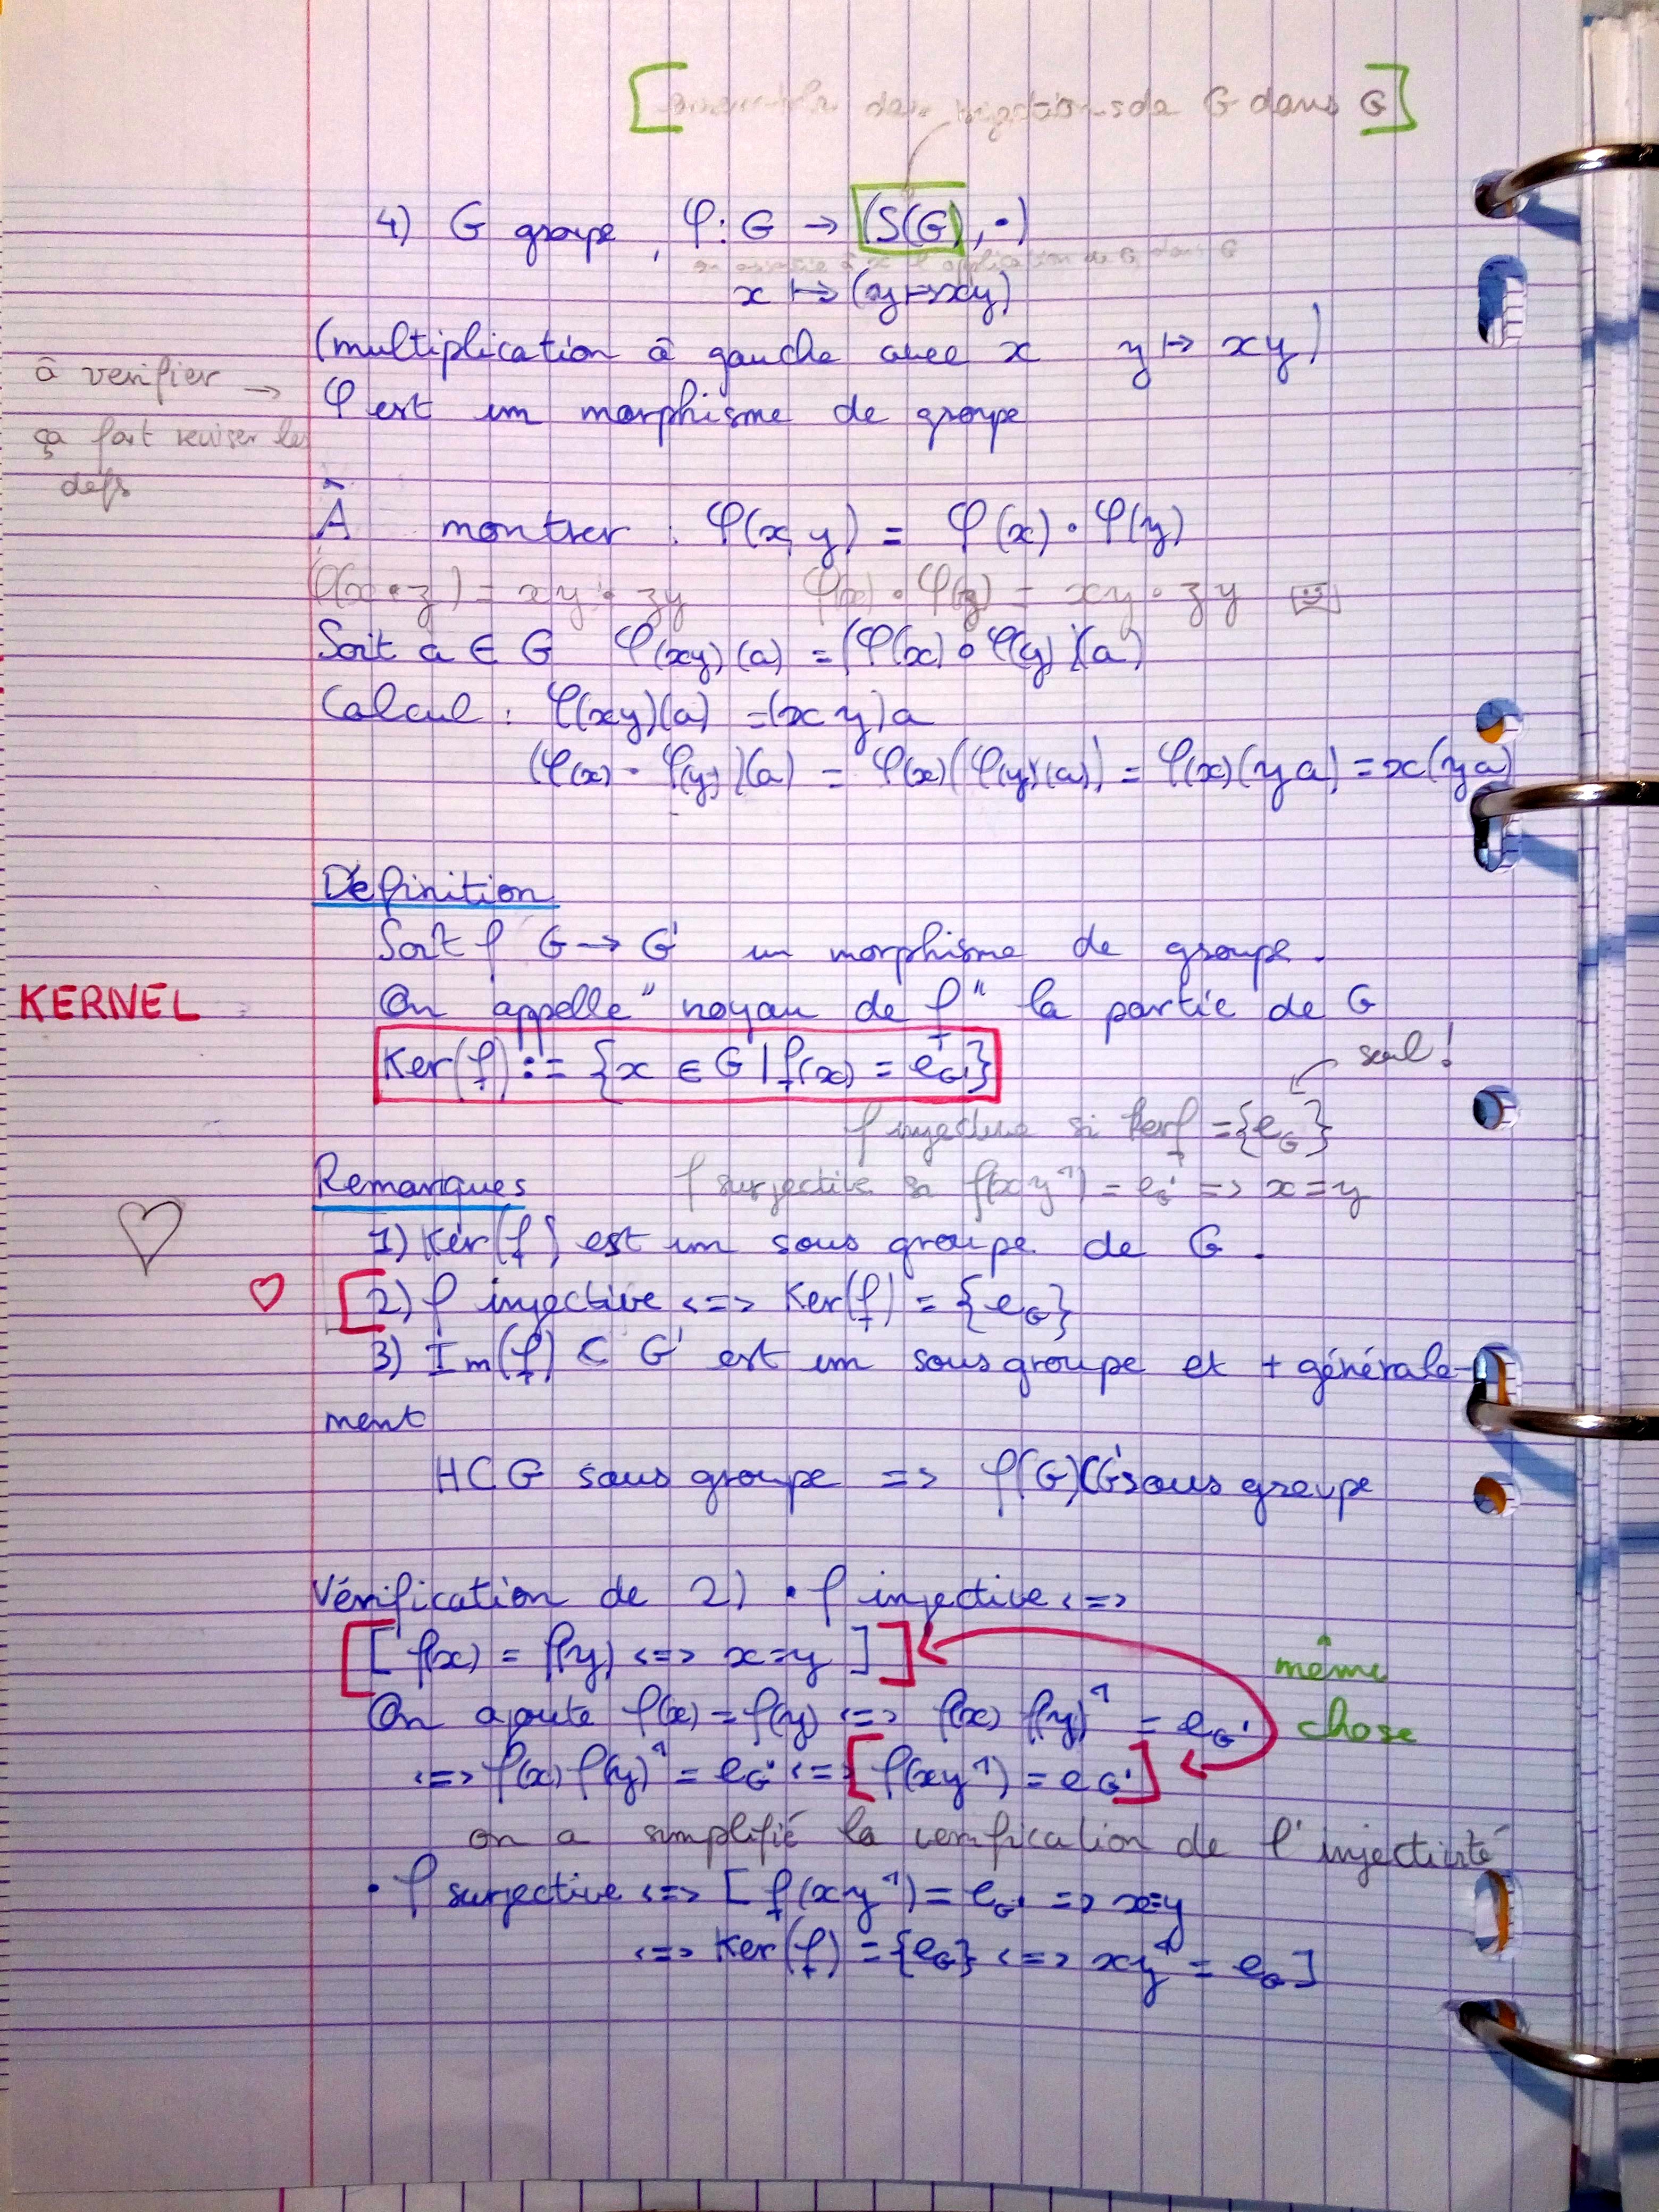 dans bijections de G dans G
4) G groupe, φ: G → (S(G), ∘)
on associe à x l'application de G dans G
x ↦ (y ↦ xy)
(multiplication à gauche avec x y ↦ xy)
à verifier →
φ est un morphisme de groupe
ça fait reviser les
defs
À montrer : φ(xy) = φ(x) ∘ φ(y)
φ(x∘z) = xy ∘ zy φ(x) ∘ φ(z) = xy ∘ zy
Soit a ∈ G φ(xy)(a) = (φ(x) ∘ φ(y))(a)
Calcul : φ(xy)(a) = (xy)a
(φ(x) ∘ φ(y))(a) = φ(x)(φ(y)(a)) = φ(x)(ya) = x(ya)
Définition
Soit f G → G' un morphisme de groupe.
KERNEL
On appelle "noyau de f" la partie de G
Ker(f) := {x ∈ G | f(x) = e_G'}
seul !
f injective si Kerf = {e_G}
Remarques
f surjective si f(xy⁻¹) = e_G' => x = y
1) Ker(f) est un sous groupe de G.
2) f injective <=> Ker(f) = {e_G}
3) Im(f) ⊂ G' est un sous groupe et + générale-
ment
H ⊂ G sous groupe => f(G) ⊂ G' sous groupe
Vérification de 2) • f injective <=>
[f(x) = f(y) <=> x=y]
même
chose
On ajoute f(x) = f(y) <=> f(x) f(y)⁻¹ = e_G'
<=> f(x) f(y)⁻¹ = e_G' <=> [f(xy⁻¹) = e_G']
on a simplifié la verification de l'injectivité
• f surjective <=> [f(xy⁻¹) = e_G' => x=y
<=> Ker(f) = {e_G} <=> xy⁻¹ = e_G]